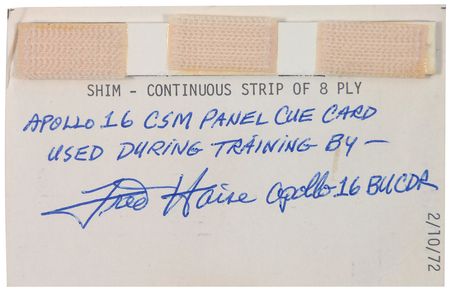 SHIM - CONTINUOUS STRIP OF 8 PLY
APOLLO 16 CSM PANEL CUE CARD
USED DURING TRAINING BY —
Fred Haise Apollo 16 BUCDR
2/10/72